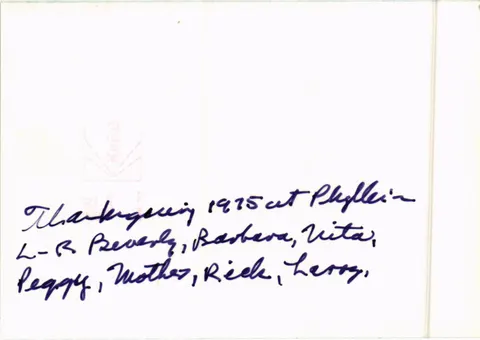 Thanksgiving 1975 at Phyllis –
L-R Beverly, Barbara, Nita,
Peggy, Mother, Rick, Larry.